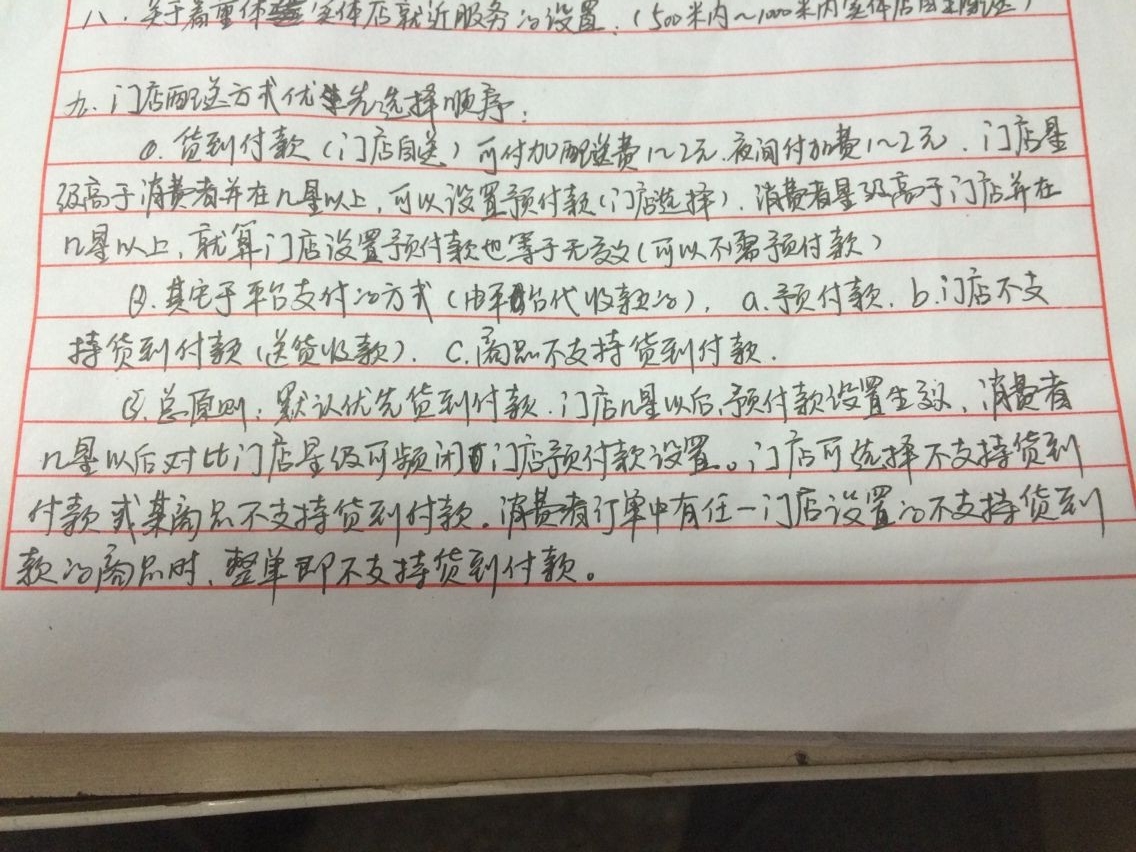 八、关于着重体实体店就近服务的设置.(500米内~1000米内实体店
九、门店配送方式优先选择顺序:
①.货到付款(门店自送)可付加配送费1~2元.夜间付加费1~2元.门店星
级高于消费者并在n星以上,可以设置预付款(门店选择).消费者星级高于门店并在
n星以上,就算门店设置预付款也等于无效(可以不需预付款)
②.其它于平台支付的方式(由平台代收款的). a.预付款. b.门店不支
持货到付款(送货收款). c.商品不支持货到付款.
③.总原则:默认优先货到付款.门店n星以后,预付款设置生效,消费者
n星以后对比门店星级可频闭门店预付款设置。门店可选择不支持货到
付款或某商品不支持货到付款。消费者订单中有任一门店设置的不支持货到
款的商品时,整单即不支持货到付款。